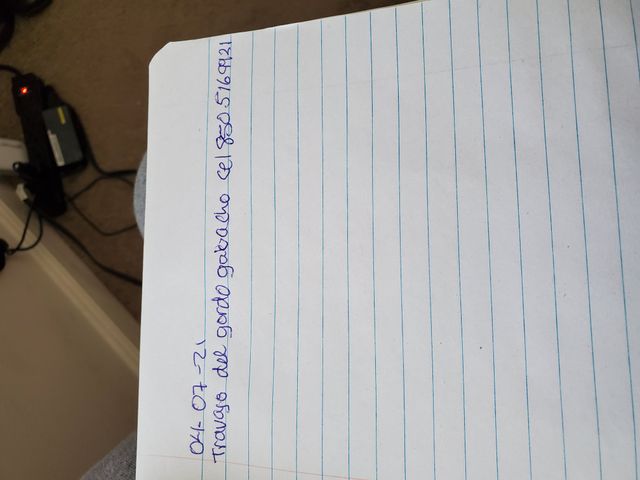 04-07-21
Travajo del gordo gabacho cel 850 5169921